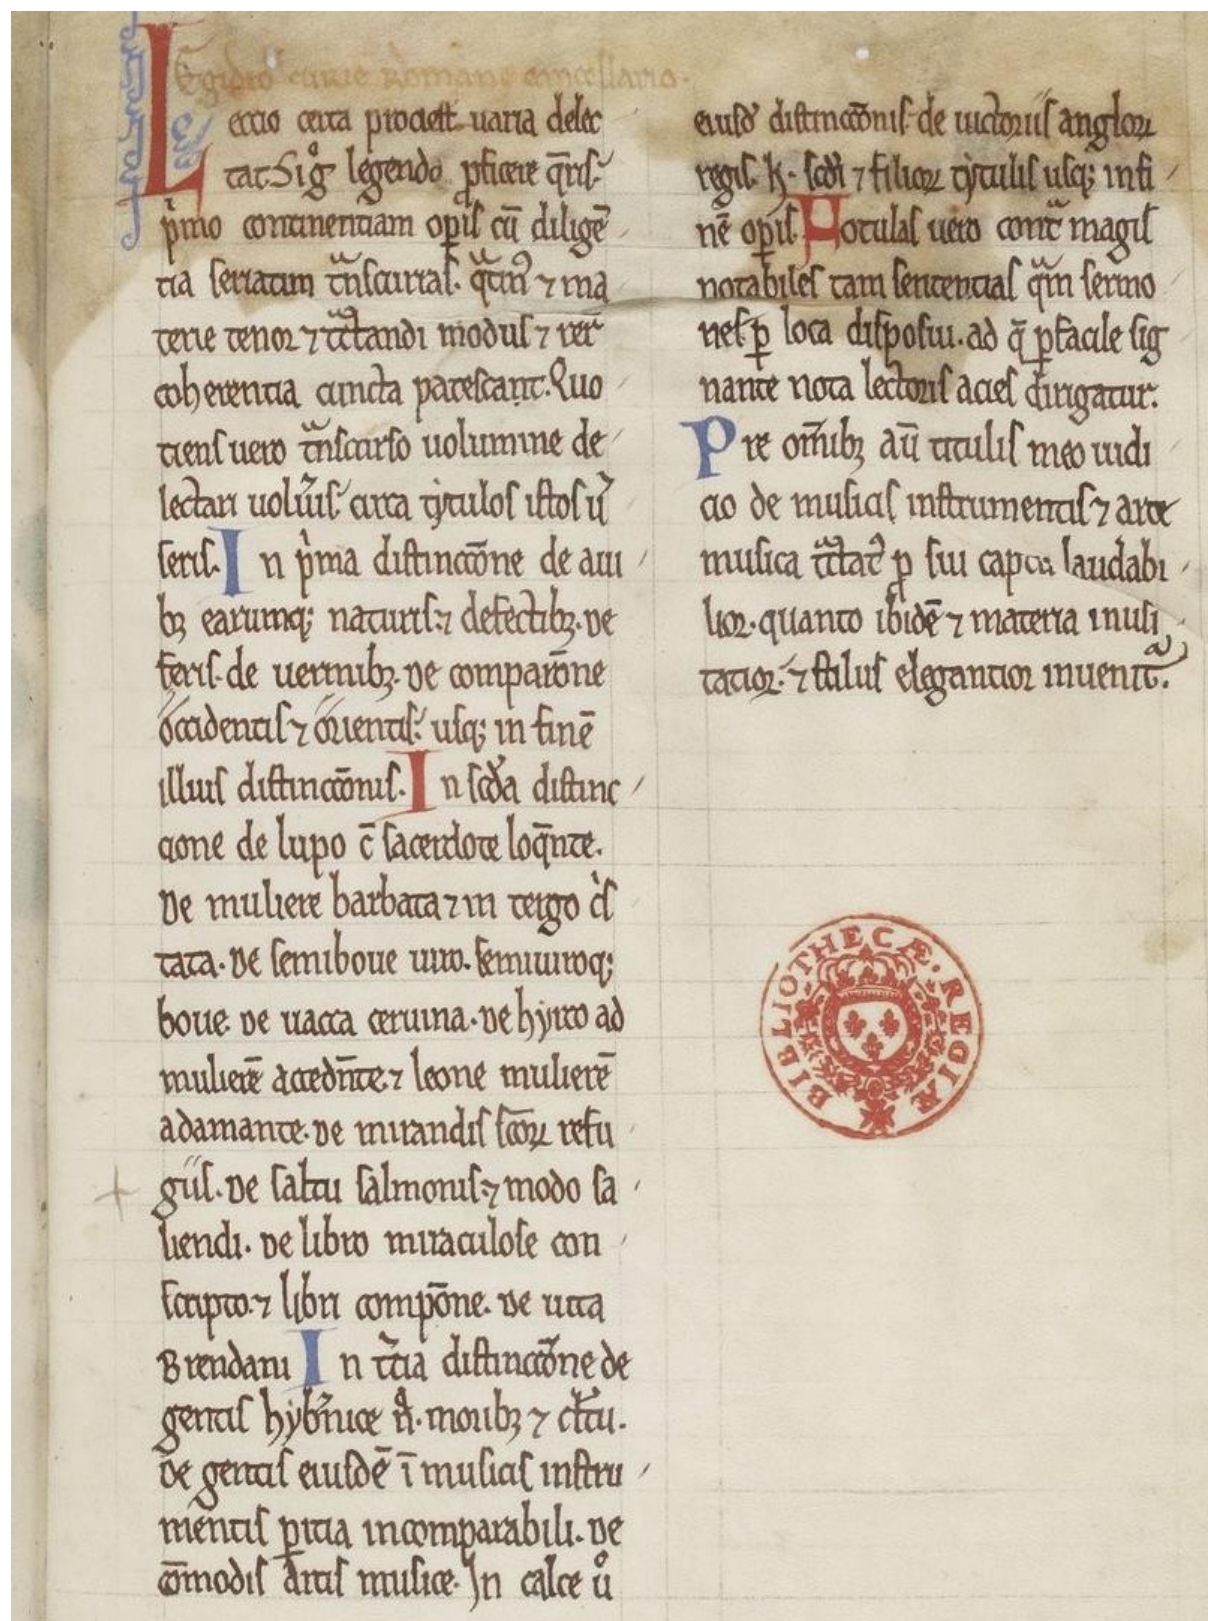 Egidio curie Romane cancellario.
Lectio certa prodest uaria delec
tat. Sig̊ legendo ꝑficere q̄ris.
p̍mo continentiam oꝑis cū diligē
tia seriatim tᷓnscurras. qᷓtin᷒ ⁊ ma
terie tenor ⁊ tᷓctandi modus ⁊ rer̄
coherentia cuncta patescant. Quo
tiens uero tᷓnscurso uolumine de
lectari uolu̓is circa tẏtulos istos u̓
seris. In p̍ma distinccōne de aui
bꝫ earumq; naturis ⁊ defectibꝫ. De
feris. de uermibꝫ. De comparōne
occidentis ⁊ orientis. usq; in finē
illius distinccōnis. In scd̓a distinc
cione de lupo c̄ sacerdote loq̄nte.
De muliere barbata ⁊ in tergo c̍s
tata. De semiboue uiro. semiuiroq;
boue. De uacca ceruina. De hyrco ad
mulierē accedn̄te. ⁊ leone mulierē
adamante. De mirandis sc̄oꝝ refu
giis. De saltu salmonis. ⁊ modo sa
liendi. De libro miraculose con
scripto. ⁊ libri compōne. De uita
Brendani In t̓cia distinccōne de
gentis hyb̓nice n̄. moribꝫ ⁊ cl̓tu.
De gentis eiusdē ī musicis instru
mentis ꝑitia incomparabili. De
cōmodis artis musice. In calce ů
eiusd̓ distinccōnis. de uictoriis angloꝝ
regis. h. scd̓i ⁊ filioꝝ tẏtulis usq; in fi
nē oꝑis. Notulas uero contᷓ magis
notabiles tam sententias qᷓm sermo
nes. ꝑ loca disposui. ad q̄ ꝑfacile sig
nante nota lectoris acies dirigatur.
Pre om̄ibꝫ aū titulis meo iudi
cio de musicis instrumentis ⁊ arte
musica tᷓctat᷒ ꝑ sui captu laudabi
lior. quanto ibidē ⁊ materia inusi
tatior. ⁊ stilus elegantior inuenitᷓ.
BIBLIOTHECÆ REGIÆ